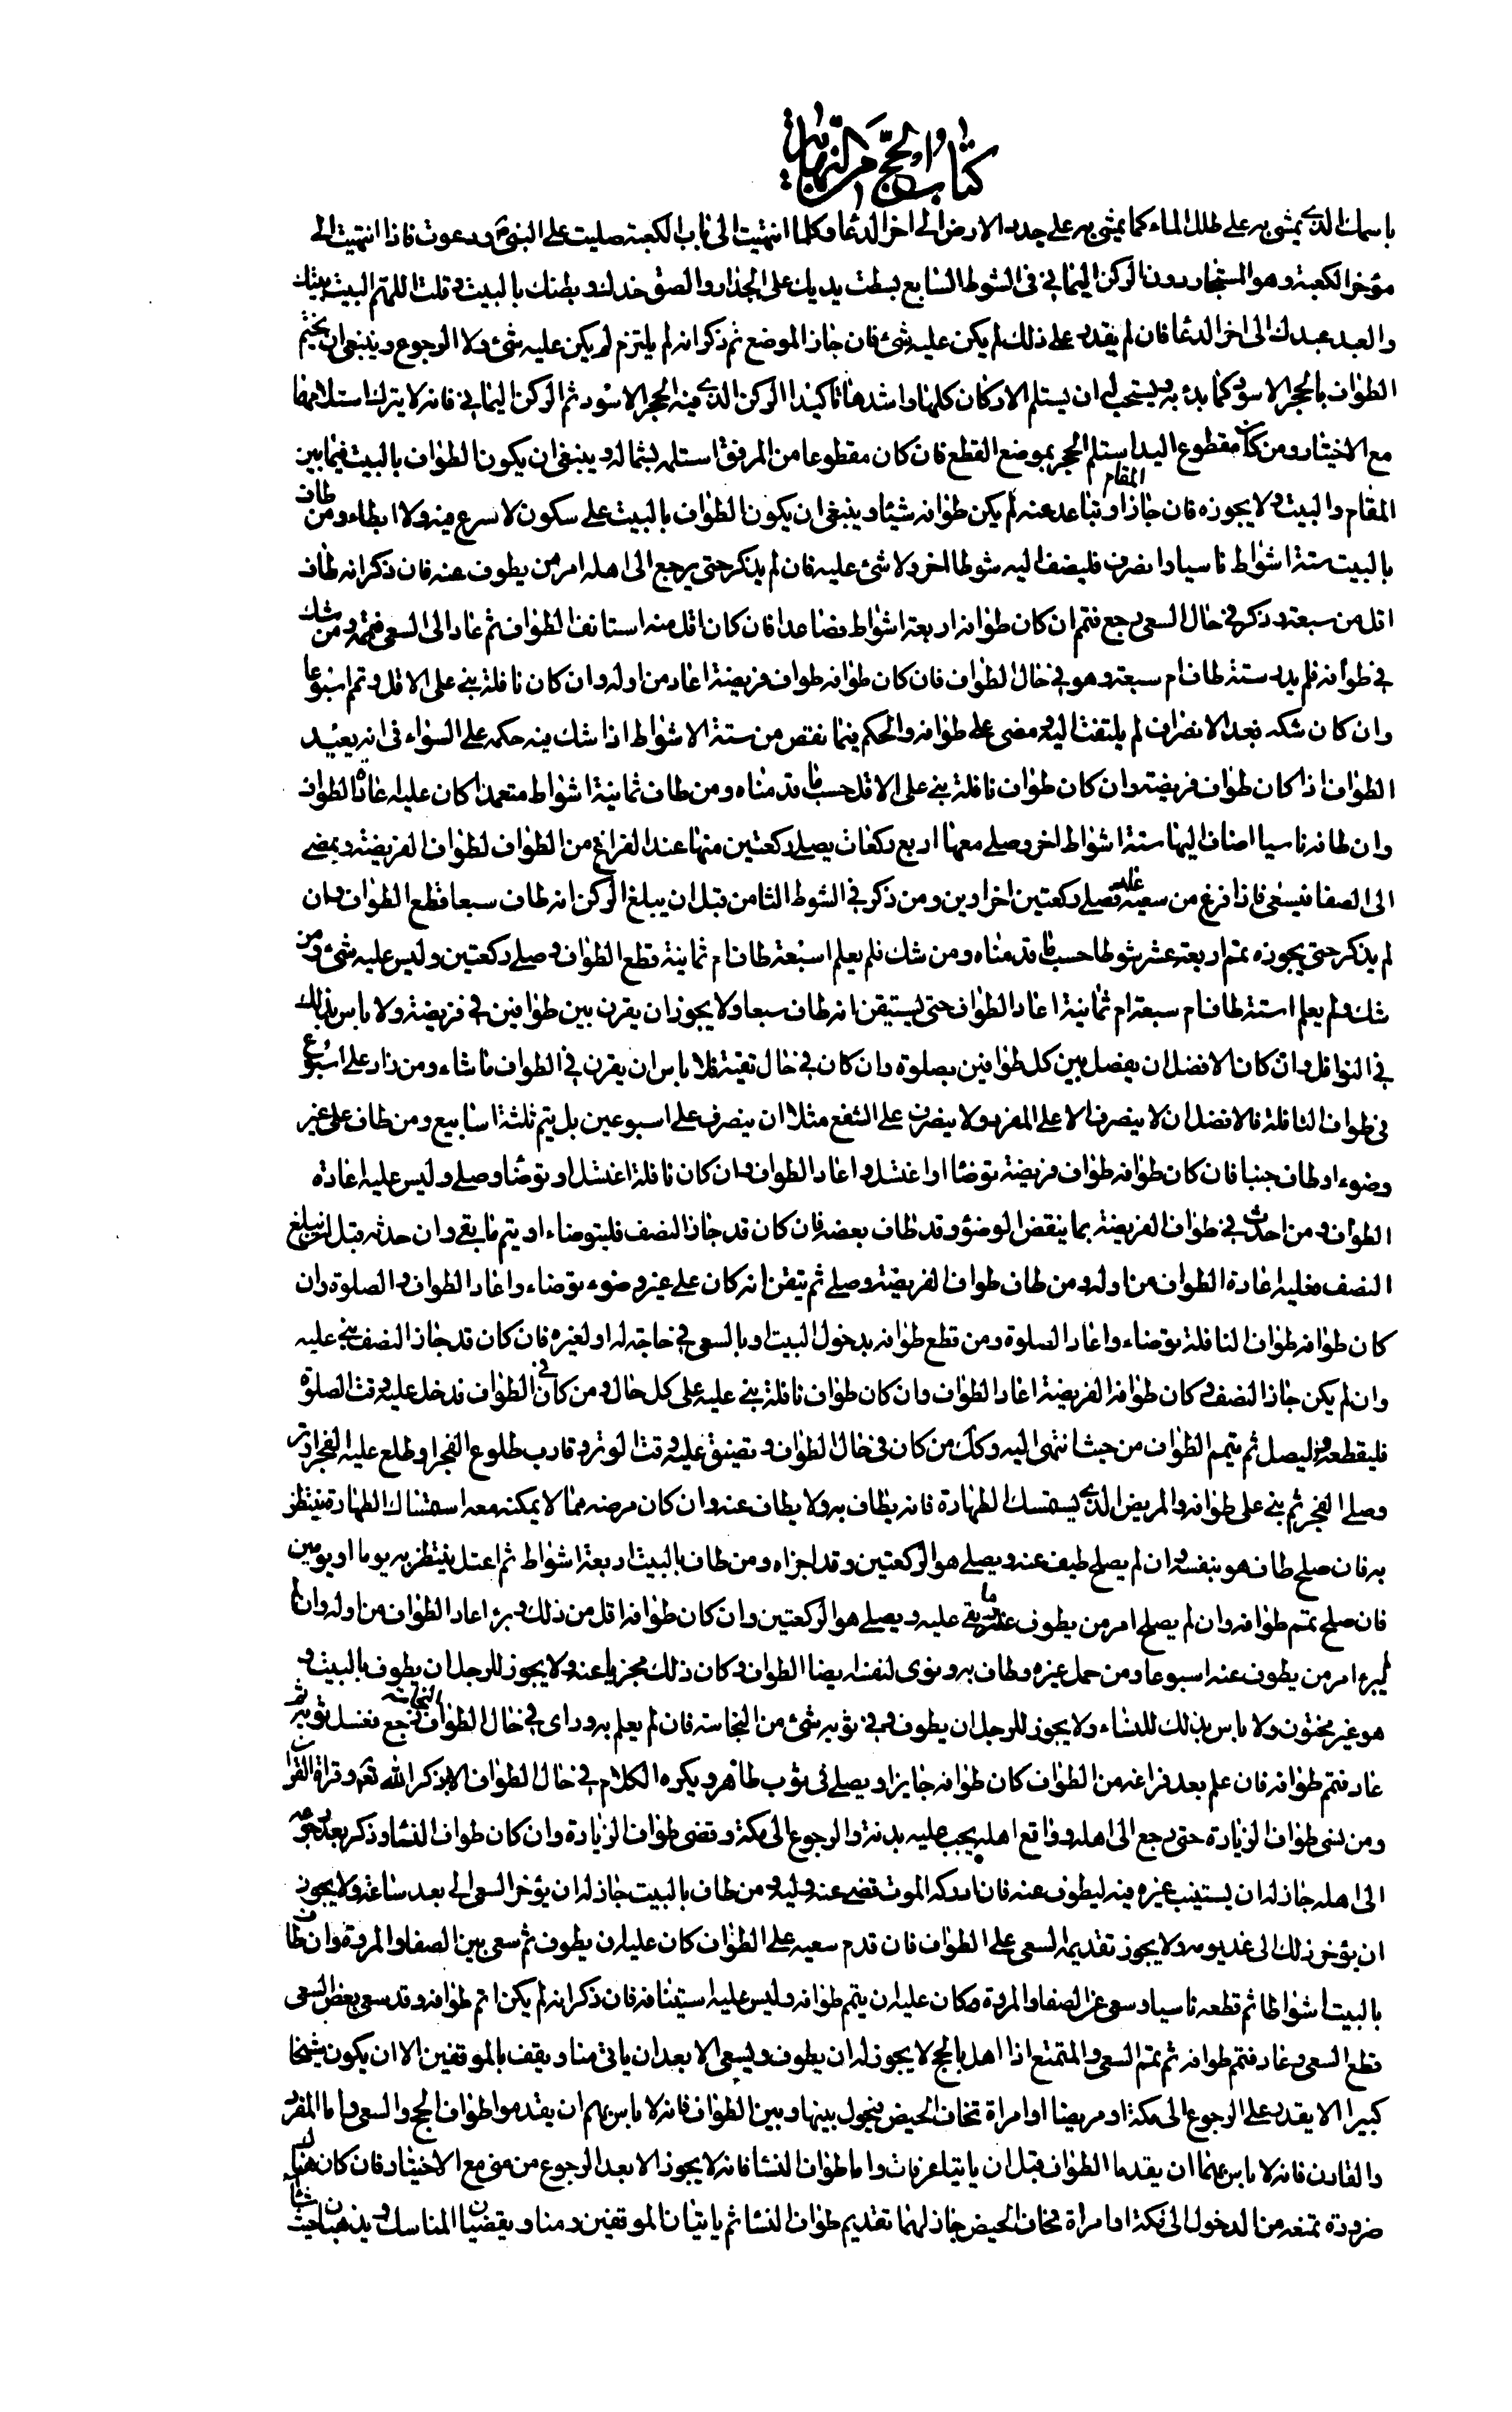 كتاب الحج من النهاية
باسمك الذي يمشى به على طلل الماء كما يمشى به على جدد الارض الى اخر الدعا وكلما انتهيت الى باب الكعبة صليت على النبى ص ودعوت فاذا انتهيت الى
مؤخر الكعبة وهو المستجار دون الركن اليمانى فى الشوط السابع بسطت يديك على الجدار والصق خدك وبطنك بالبيت وقلت اللهم البيت بيتك
والعبد عبدك الى اخر الدعا فان لم يقدر على ذلك لم يكن عليه شئ فان جاز الموضع ثم ذكر انه لم يلتزم لم يكن عليه شئ ولا الرجوع وينبغى ان يختم
الطواف بالحجر الاسود كما بدء به ويستحب له ان يستلم الاركان كلها واشدها تاكيدا الركن الذي فيه الحجر الاسود ثم الركن اليمانى فانه لا يترك استلامهما
مع الاختيار ومن كان مقطوع اليد استلم الحجر بموضع القطع فان كان مقطوعا من المرفق استلم بشماله وينبغى ان يكون الطواف بالبيت فيما بين
المقام والبيت ولا يجوزه فان جاز المقام او تباعد عنه لم يكن طوافه شيئا وينبغى ان يكون الطواف بالبيت على سكون لا سرع فيه ولا ابطاء ومن طاف
بالبيت ستة اشواط ناسيا وانصرف فليضف اليه شوطا اخر ولا شئ عليه فان لم يذكر حتى يرجع الى اهله امر من يطوف عنه فان ذكر انه طاف
اقل من سبعة وذكر فى حال السعى رجع فتمم ان كان طوافه اربعة اشواط فصاعدا فان كان اقل منه استانف الطواف ثم عاد الى السعى فتممه ومن شك
فى طوافه فلم يدر ستة طاف ام سبعة وهو فى حال الطواف فان كان طوافه طواف فريضة اعاد من اوله وان كان نافلة بنى على الاقل وتمم اسبوعا
وان كان شكه بعد الانصراف لم يلتفت اليه ومضى على طوافه والحكم فيما نقص من ستة الاشواط اذا شك فيه حكمه على السواء فى انه يعيد
الطواف اذا كان طواف فريضة وان كان طواف نافلة بنى على الاقل حسب ما قدمناه ومن طاف ثمانية اشواط متعمدا كان عليه اعادة الطواف
وان طافه ناسيا اضاف اليها ستة اشواط اخر وصلى معها اربع ركعات يصلى ركعتين منها عند الفراغ من الطواف لطواف الفريضة ويمضى
الى الصفا فيسعى فاذا فرغ من سعيه عاد فصلى ركعتين اخراوين ومن ذكر فى الشوط الثامن قبل ان يبلغ الركن انه طاف سبعا قطع الطواف وان
لم يذكر حتى يجوزه تمم اربعة عشر شوطا حسب ما قدمناه ومن شك فلم يعلم اسبعة طاف ام ثمانية قطع الطواف وصلى ركعتين وليس عليه شئ ومن
شك ولم يعلم استة طاف ام سبعة ام ثمانية اعاد الطواف حتى يستيقن انه طاف سبعا ولا يجوز ان يقرن بين طوافين فى فريضة ولا باس بذلك
فى النوافل وان كان الافضل ان يفصل بين كل طوافين بصلوة وان كان فى حال تقية فلا باس ان يقرن فى الطواف ما شاء ومن زاد على اسبوع
فى طواف النافلة فالافضل ان لا ينصرف الا على المفرد ولا ينصرف على الشفع مثلا ان ينصرف على اسبوعين بل يتم ثلثة اسابيع ومن طاف على غير
وضوء او طاف جنبا فان كان طوافه طواف فريضة توضأ او اغتسل واعاد الطواف وان كان نافلة اغتسل او توضأ وصلى وليس عليه اعادة
الطواف ومن احدث فى طواف الفريضة بما ينقض الوضوء وقد طاف بعضه فان كان قد جاز النصف فليتوضاء او يتم ما بقى وان حدثه قبل ان يبلغ
النصف فعليه اعادة الطواف من اوله ومن طاف طواف الفريضة وصلى ثم تيقن انه كان على غير وضوء توضاء واعاد الطواف والصلوة وان
كان طوافه طواف النافلة توضاء واعاد الصلوة ومن قطع طوافه بدخول البيت او بالسعى فى حاجة له او لغيره فان كان قد جاز النصف بنى عليه
وان لم يكن جاز النصف وكان طوافه الفريضة اعاد الطواف وان كان طواف نافلة بنى عليه على كل حال ومن كان فى الطواف فدخل عليه وقت الصلوة
فليقطعه وليصل ثم يتمم الطواف من حيث انتهى اليه وكك من كان فى حال الطواف وتضيق عليه وقت الوتر وقارب طلوع الفجر او طلع عليه الفجر اوتر
وصلى الفجر ثم بنى على طوافه والمريض الذي يستمسك الطهارة فانه يطاف به ولا يطاف عنه وان كان مرضه مما لا يمكنه معه استمساك الطهارة ينتظر
به فان صلح طاف هو بنفسه وان لم يصلح طيف عنه ويصلى هو الركعتين وقد اجزاه ومن طاف بالبيت اربعة اشواط ثم اعتل ينتظر به يوما او يومين
فان صلح تمم طوافه وان لم يصلح امر من يطوف عنه ما بقى عليه ويصلى هو الركعتين وان كان طوافه اقل من ذلك وبرء اعاد الطواف من اوله وان لم
يبرء امر من يطوف عنه اسبوعا ومن حمل غيره وطاف به ونوى لنفسه ايضا الطواف وكان ذلك مجزيا عنه ولا يجوز للرجل ان يطوف بالبيت و
هو غير مختون ولا باس بذلك للنساء ولا يجوز للرجل ان يطوف وفى ثوبه شئ من النجاسة فان لم يعلم به وراى فى حال الطواف النجاسة رجع فغسل ثوبه ثم
عاد فتم طوافه فان علم بعد فراغه من الطواف كان طوافه جايزا ويصلى فى ثوب طاهر ويكره الكلام فى حال الطواف الا بذكر الله تعه وقراءة القران
ومن نسى طواف الزيادة حتى رجع الى اهله وواقع اهله يجب عليه بدنة والرجوع الى مكة وقضى طواف الزيادة وان كان طواف النساء وذكر بعد رجوعه
الى اهله جاز له ان يستنيب غيره فيه ليطوف عنه فان ادركه الموت قضى عنه وليه ومن طاف بالبيت جاز له ان يؤخر السعى الى بعد ساعة ولا يجوز
ان يؤخر ذلك الى غد يومه ولا يجوز تقديم السعى على الطواف فان قدم سعيه على الطواف كان عليه ان يطوف ثم سعى بين الصفا والمروة وان طاف
بالبيت اشواطا ثم قطعه ناسيا وسعى بين الصفا والمروة كان عليه ان يتمم طوافه وليس عليه استينافه فان ذكر انه لم يكن اتم طوافه وقد سعى بعض السعى
قطع السعى وعاد فتمم طوافه ثم تمم السعى والمتمتع اذا اهل بالحج لا يجوز له ان يطوف ويسعى الا بعد ان ياتى منا ويقف بالموقفين الا ان يكون شيخا
كبيرا لا يقدر على الرجوع الى مكة او مريضا او امراة تخاف الحيض فيحول بينها وبين الطواف فانه لا باس بهم ان يقدموا طواف الحج والسعى واما المفرد
والقارن فانه لا باس بهما ان يقدما الطواف قبل ان ياتيا عرفات واما طواف النسا فانه لا يجوز الا بعد الرجوع من منى مع الاختيار فان كان هناك
ضرورة تمنعه من الدخول الى مكة او امراة تخاف الحيض جاز لهما تقديم طواف النسا ثم ياتيان الموقفين ومنا ويقضيان المناسك ويذهبان حيث شاآ